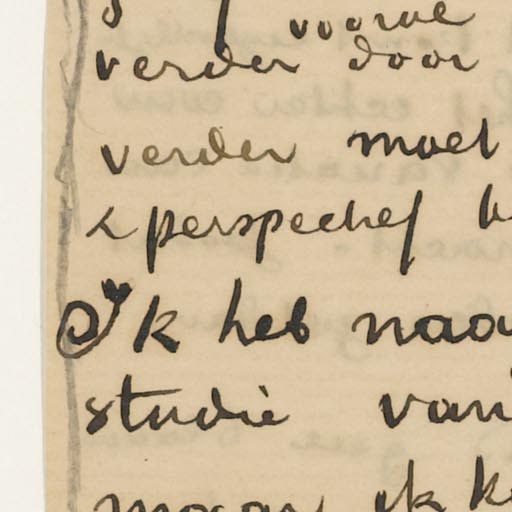 voorde
verder door
verder moet
& perspectief
Ik heb naa
studie van
maar ik k